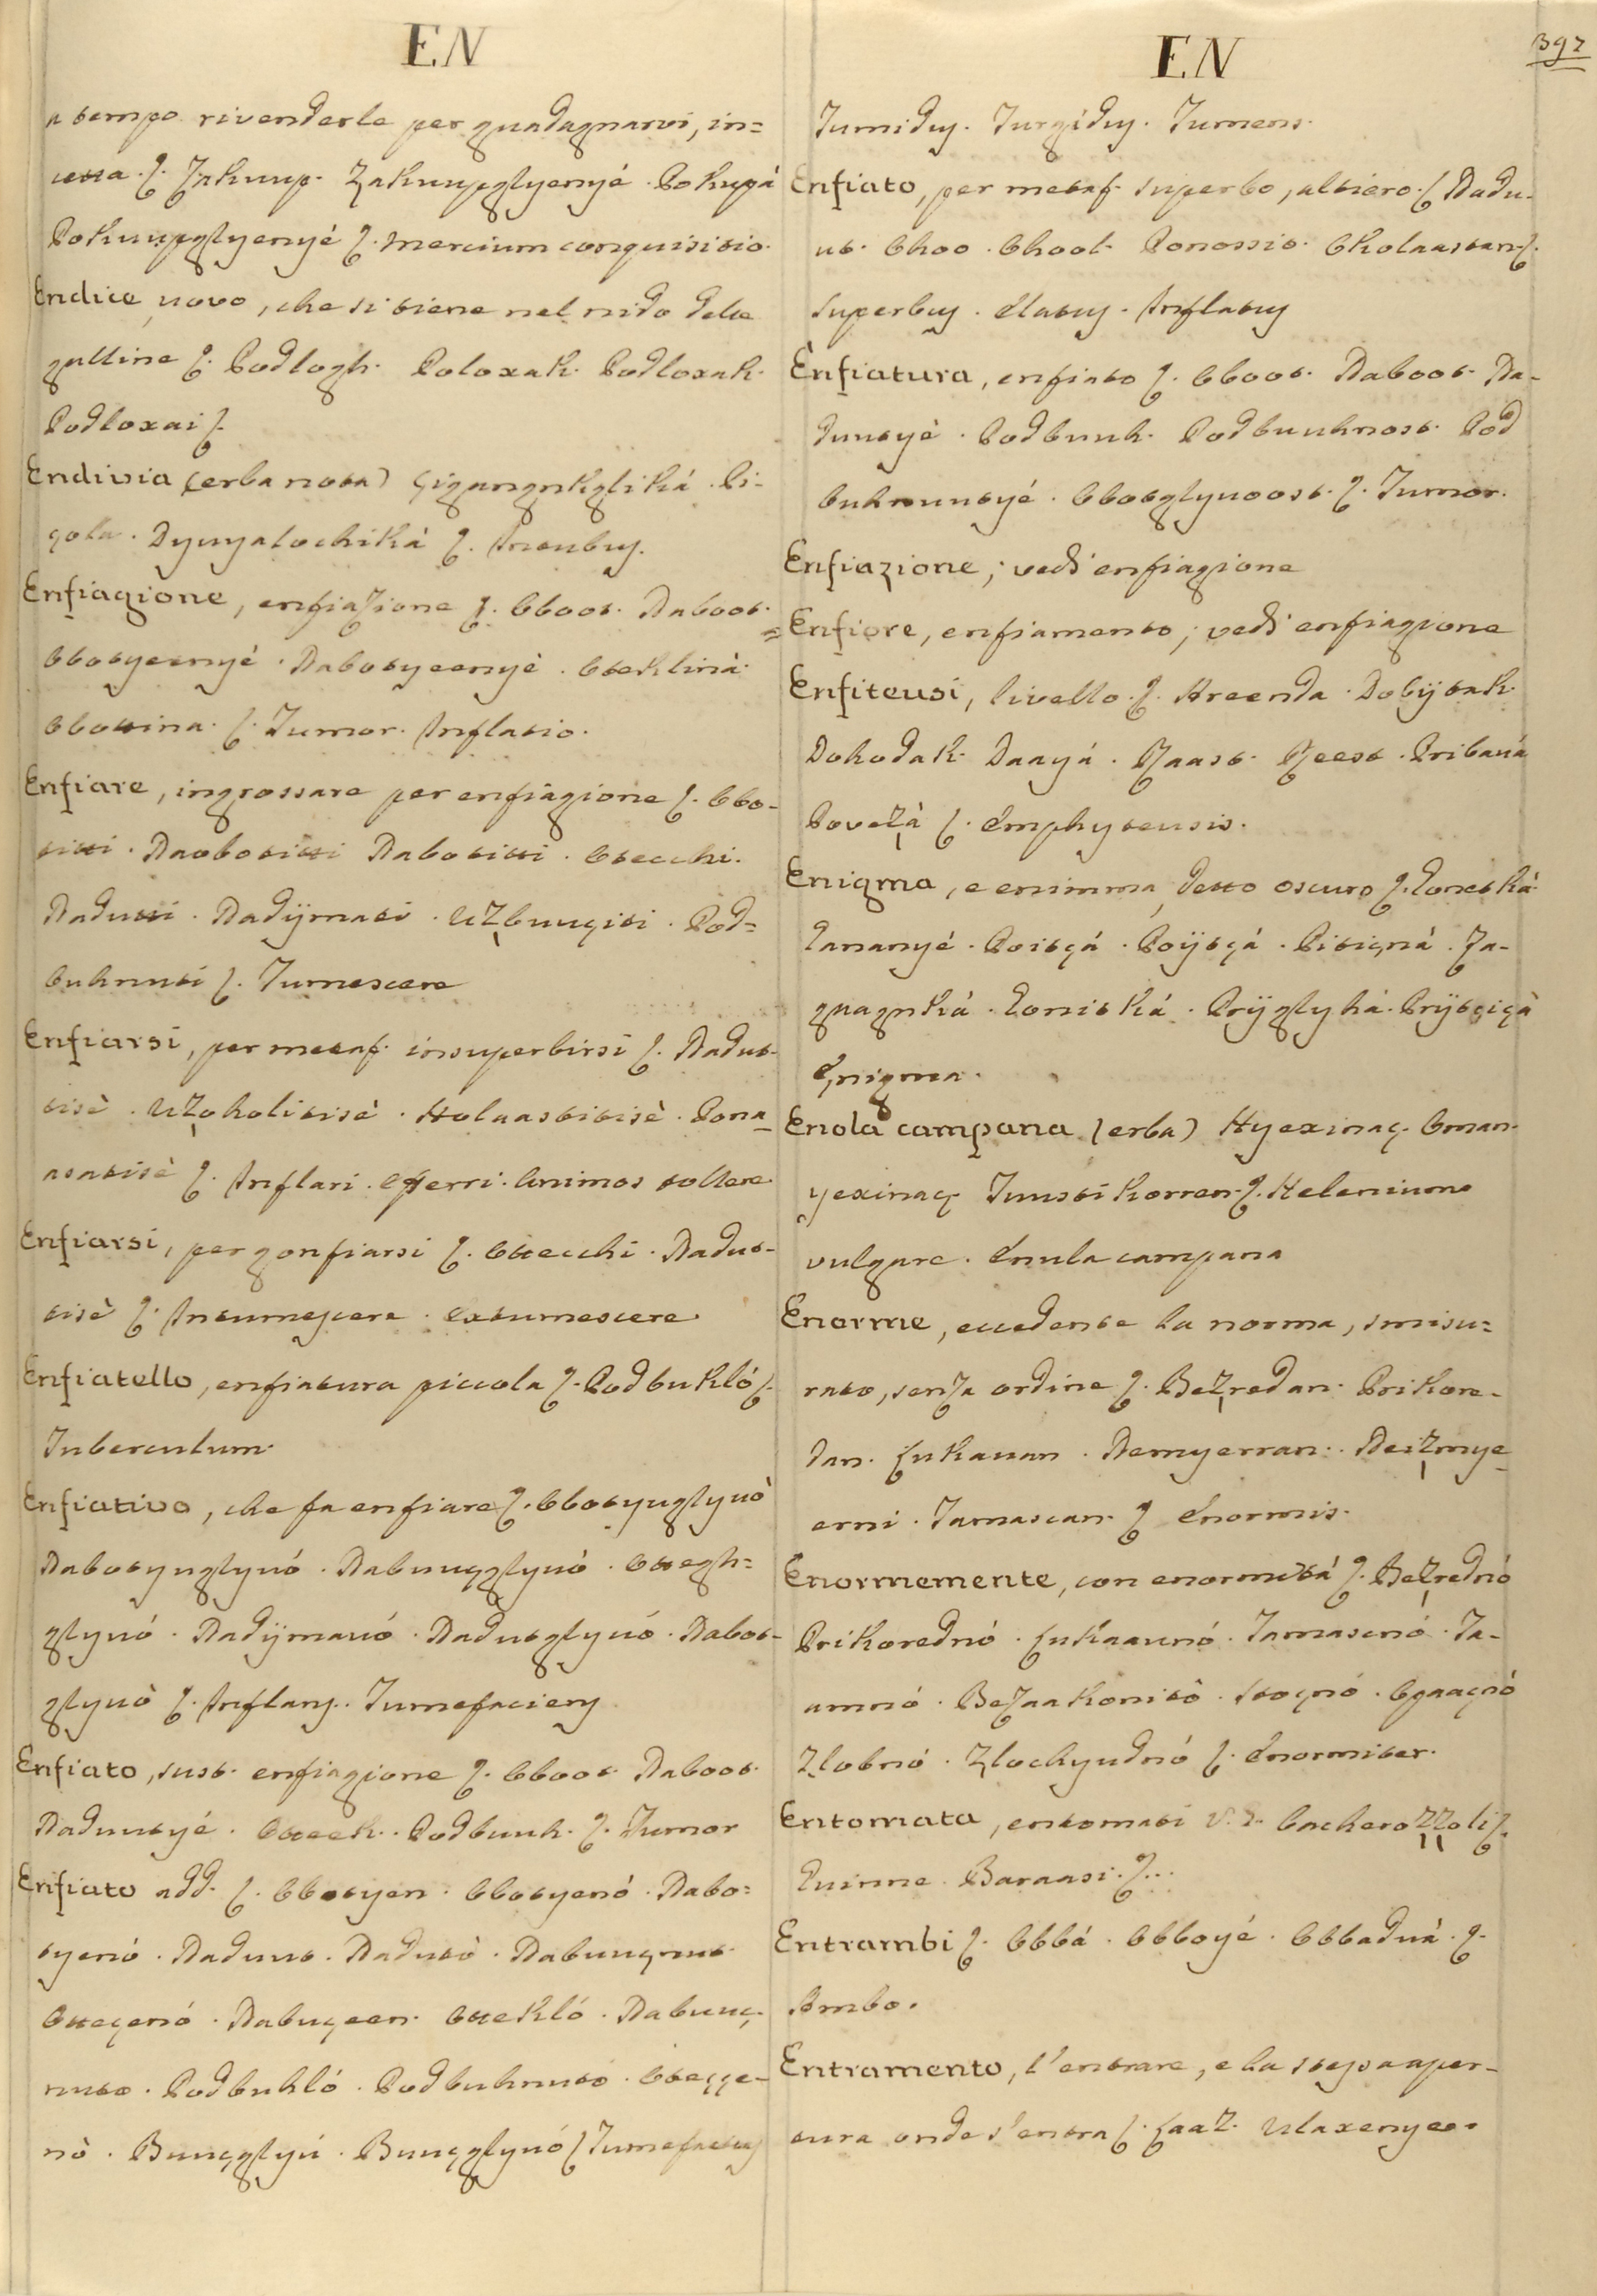 EN
a tempo rivenderle per guadagnarvi, in=
cetta. ſ. Zakuup. Zakuupglyenyé. Pokupá
Pokuupglyenyé ſ. mercium conquisitio.
Endice, uovo, che si tiene nel nido delle
galline ſ. Podlogh. Poloxak. Podloxak.
Podloxai ſ.
Endivia (erba nota) Gigangnkglikà. Pi-
gola. Dyuyalochikà ſ. Intubus.
Enfiagione, enfiazione ſ. Oboot. Naboot.
Obotyeenyé. Nabotyeenyè. Oteklinà.
Obottina. ſ. Tumor. Inflatio.
Enfiare, ingrossare per enfiagione ſ. Obo-
titti. Naobotitti Nabotitti. Otecchi.
Nadutti. Nadijmati. Uzbuugiti. Pod=
buhnuti ſ. Tumescere
Enfiarsi, per metaf. insuperbirsi ſ. Nadut-
tisè. Uzoholitisè. Holaastitisè. Pona_
asatisè ſ. Inflari. Efferri. Animos tollere
Enfiarsi, per gonfiarsi ſ. Ottecchi. Nadut-
tisè ſ. Intumescere. Extumescere
Enfiatello, enfiatura piccola ſ. Podbukló ſ.
Tuberculum.
Enfiativo, che fa enfiare ſ. Obotyuglyuò
Nabotyuglyuó. Nabuugglyuò. Ottegh=
glyuó. Nadijmauó. Nadutglyuó. Nabot-
glyuò ſ. Inflans. Tumefaciens
Enfiato, sust. enfiagione ſ. Oboot. Naboot.
Naduutyé. Otteek. Podbuuh. ſ. Tumor
Enfiato add. ſ. Obotyen. Obotyenó. Nabo=
tyenó. Naduut. Nadutò. Nabuugnut.
Ottegenó. Nabugeen. Otteklό. Nabuug-
nuto. Podbuhló. Podbuhnuto. Otegge-
nò. Buugglyú. Buugglyuó ſ Tumefactus
EN
397
Tumidus. Turgidus. Tumens.
Enfiato, per metaf. superbo, altiero. ſ Nadu-
ut. Ohoo. Ohool. Ponossit. Oholaastan ſ.
Superbus. Elatus. Inflatus
Enfiatura, enfiato ſ. Oboot. Naboot. Na-
duutyè. Podbuuh. Podbuuhnost. Pod
buhnuutyé. Obotglyuoost. ſ. Tumor.
Enfiazione, vedi enfiagione
= Enfiore, enfiamento; vedi enfiagione
Enfiteusi, livello. ſ. Areenda. Dobijtak.
Dohodak. Daayá. Zaast. Zeest. Pribauá
Povezà ſ. Emphyteusis.
Enigma, e enimma, detto oscuro ſ. Gonetká.
Gananyé. Poitgá. Poijtgá. Pitignà. Za-
guagnkà. Gonitká. Prijglyká. Prijtgigà
Enigma.
Enola campana (erba) Hyexinag. Oman.
yexinag Tuusti korren. ſ. Helenium
vulgare. Enula campana
Enorme, eccedente la norma, smisu=
rato, senza ordine ſ. Bezredan. Prikore-
dan. Lukauan. Nemyerran. Neizmye_
erni. Tamascan. ſ Enormis.
Enormemente, con enormità ſ. Bezrednó
Prikorednó. Lukaaunó. Tamascnó. Ta-
amnó. Bezaakonitò. Stognó. Opaagnò
Zlobnó. Zlochyudnó ſ. Enormiter.
Entomata, entomati V. I. bacherozzoli ſ.
Guinne. Baraasi. ſ...
Entrambi ſ. Obbá. Obboyé. Obbaduà. ſ.
Ambo.
Entramento, l'entrare, e la stessa aper-
tura onde s'entra ſ. Laaz. Ulaxenye.